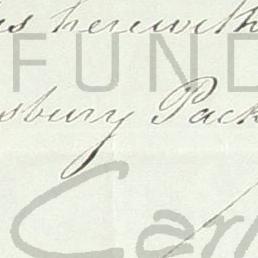 is herewith
FUND
sbury Pack
Car